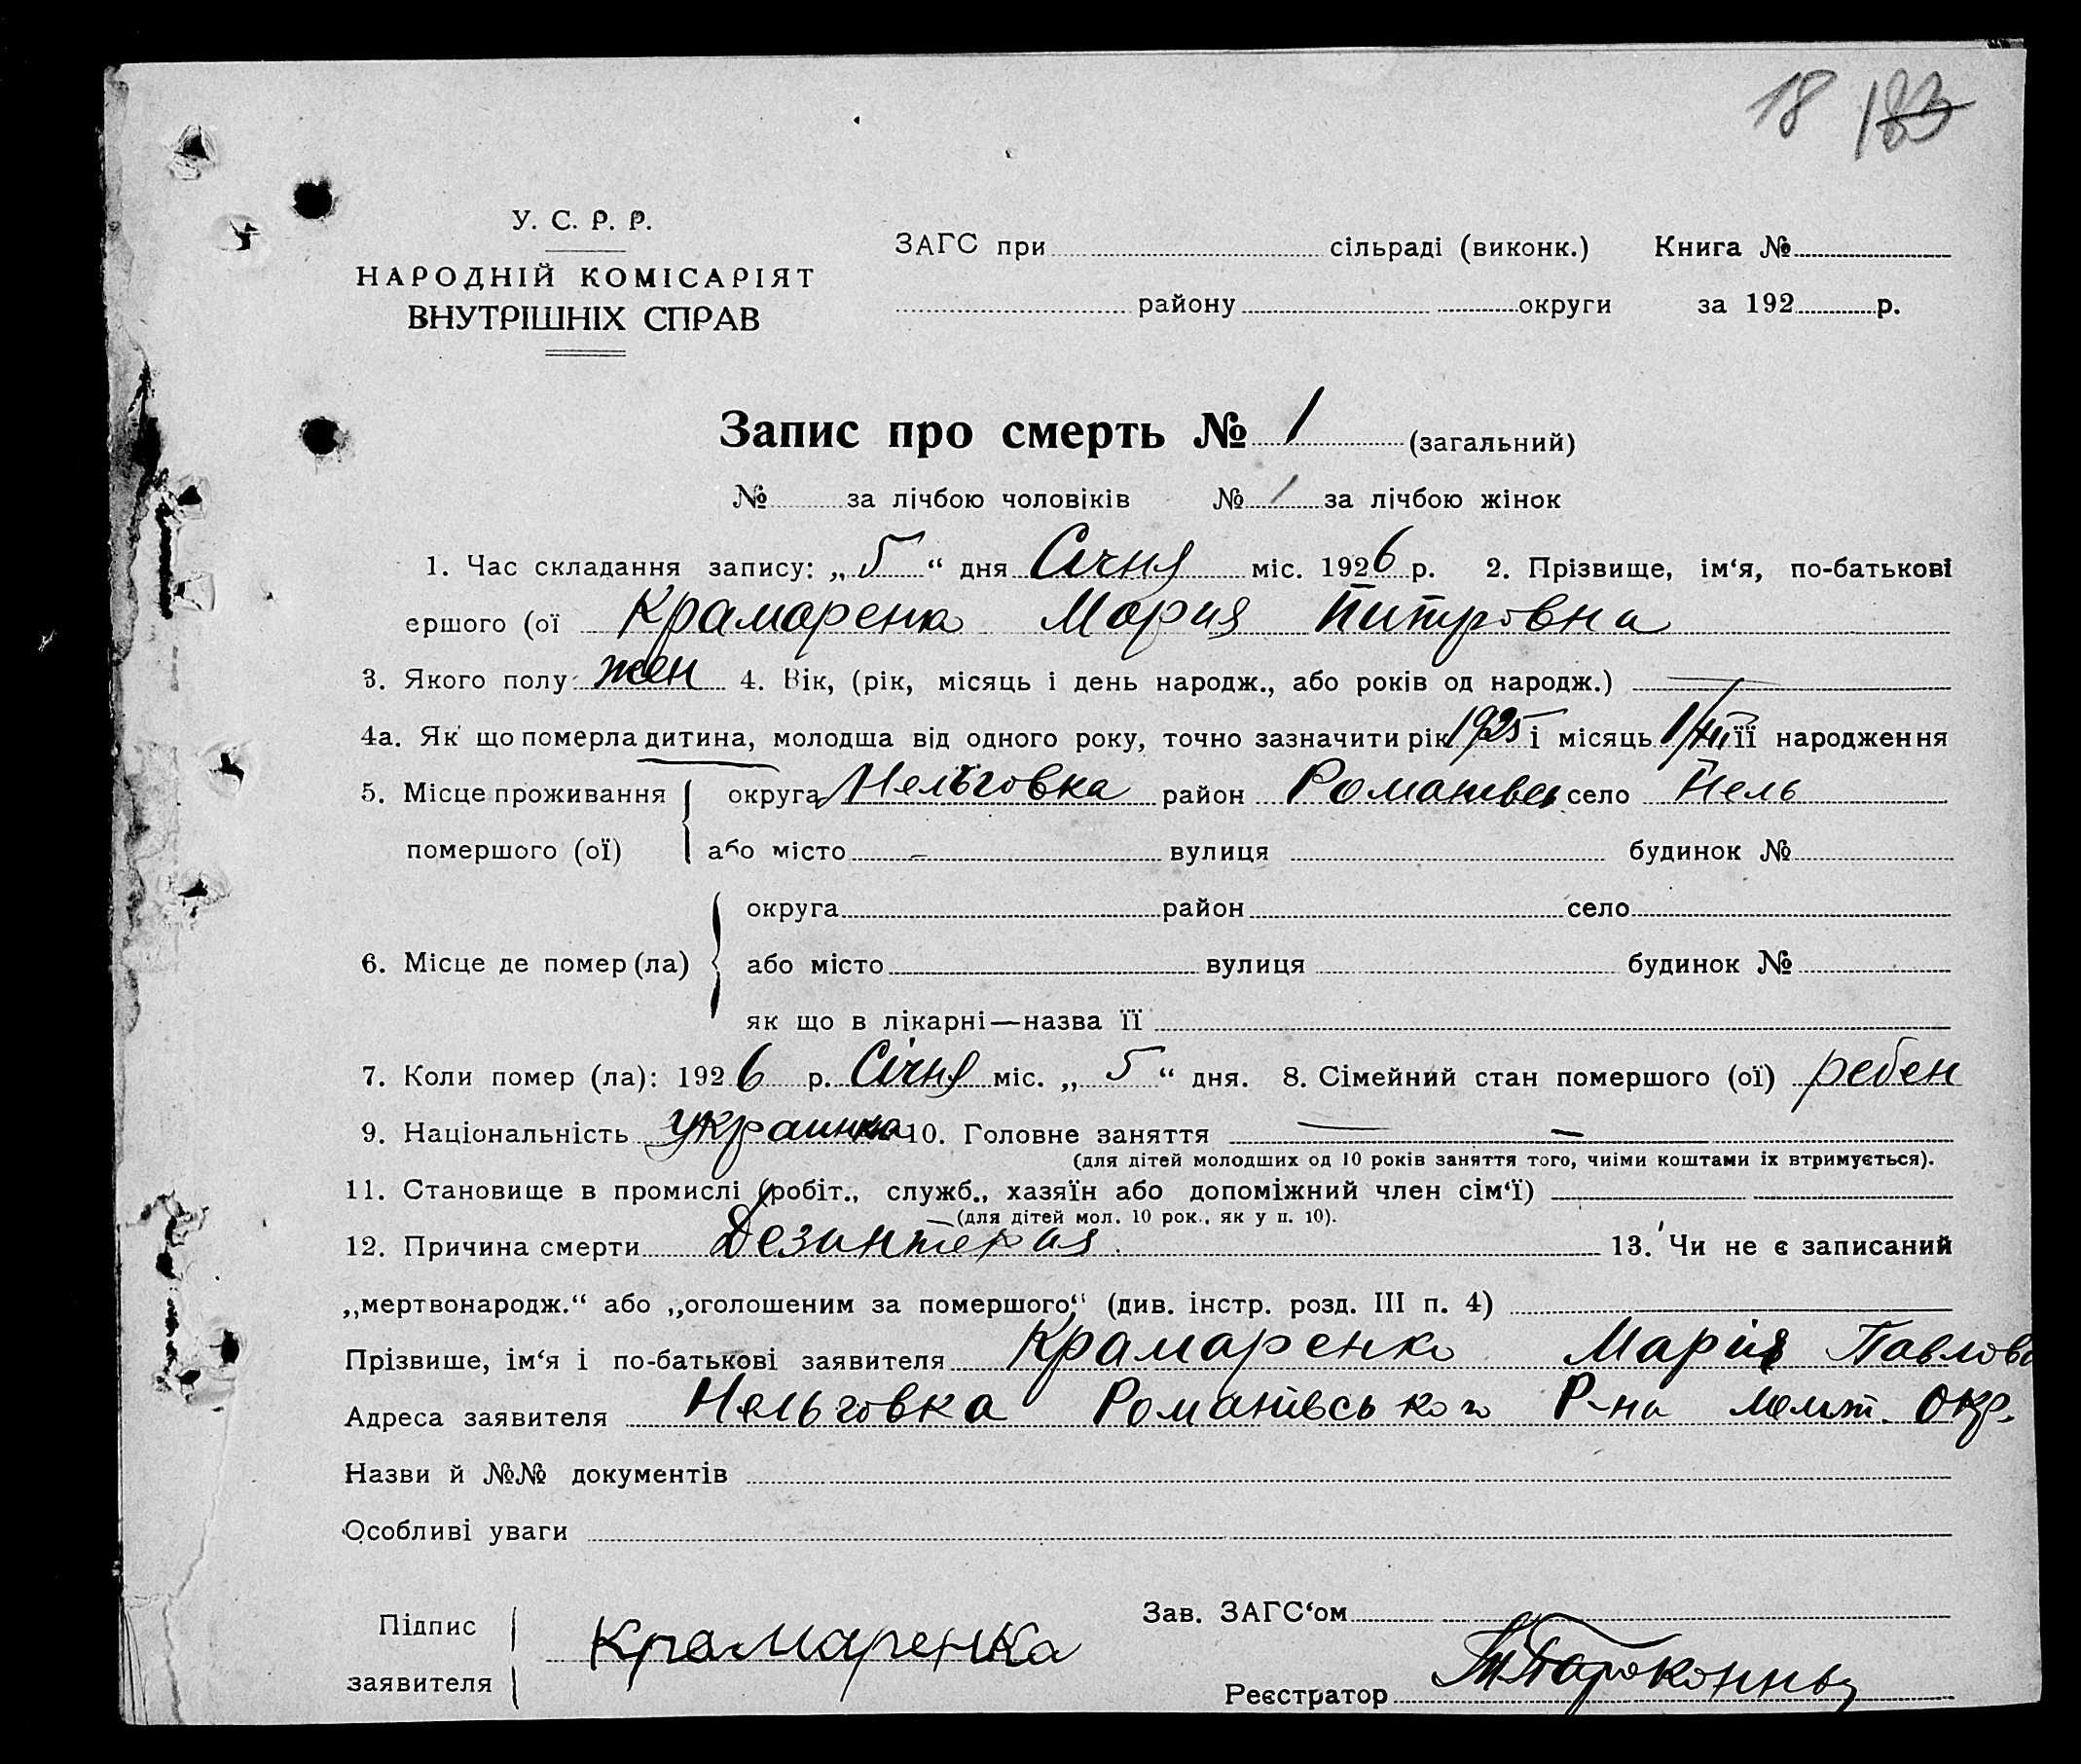 18 183
У. С. Р. Р.
НАРОДНІЙ КОМІСАРІЯТ
ВНУТРІШНІХ СПРАВ
ЗАГС при сільраді (виконк.) Книга №
району округи за 192 р.
Запис про смерть № 1 (загальний)
№ за лічбою чоловіків № 1 за лічбою жінок
1. Час складання запису: „ 5 “ дня Січня міс. 1926 р. 2. Прізвище, ім‘я, по-батькові
ершого (ої Крамаренко Мария Питровна
3. Якого полу жен 4. Вік, (рік, місяць і день народж., або років од народж.) —
4а. Як що померла дитина, молодша від одного року, точно зазначити рік 1925 і місяць її народження
5. Місце проживання округа Нельговка район село Нель
помершого (ої) або місто – вулиця будинок №
округа район село
6. Місце де помер (ла) або місто вулиця будинок №
як що в лікарні—назва її
7. Коли помер (ла): 1926 р. Січня міс. „ 5 “ дня. 8. Сімейний стан помершого (ої) ребен
9. Національність украинка 10. Головне заняття — —
(для дітей молодших од 10 років заняття того, чиїми коштами їх втримується).
11. Становище в промислі (робіт., служб., хазяїн або допоміжний член сім‘ї)
(для дітей мол. 10 рок., як у п. 10).
12. Причина смерти Дезинтерия. 13. Чи не є записаний
„мертвонародж.“ або „оголошеним за помершого“ (див. інстр. розд. III п. 4)
Прізвише, ім‘я і по-батькові заявителя Крамаренко Марія Павлова
Адреса заявителя Нельговка Романівського Р-на окр.
Назви й №№ документів
Особливі уваги
Підпис заявителя Крамаренка
Зав. ЗАГС‘ом
Реєстратор